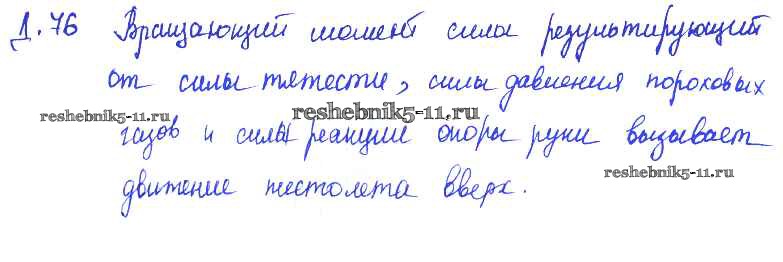 Д.76 Вращающий момент силы результирующий
от силы тяжести, силы давления пороховых
reshebnik5-11.ru reshebnik5-11.ru
газов и силы реакции опоры руки вызывает
reshebnik5-11.ru
движение пистолета вверх.